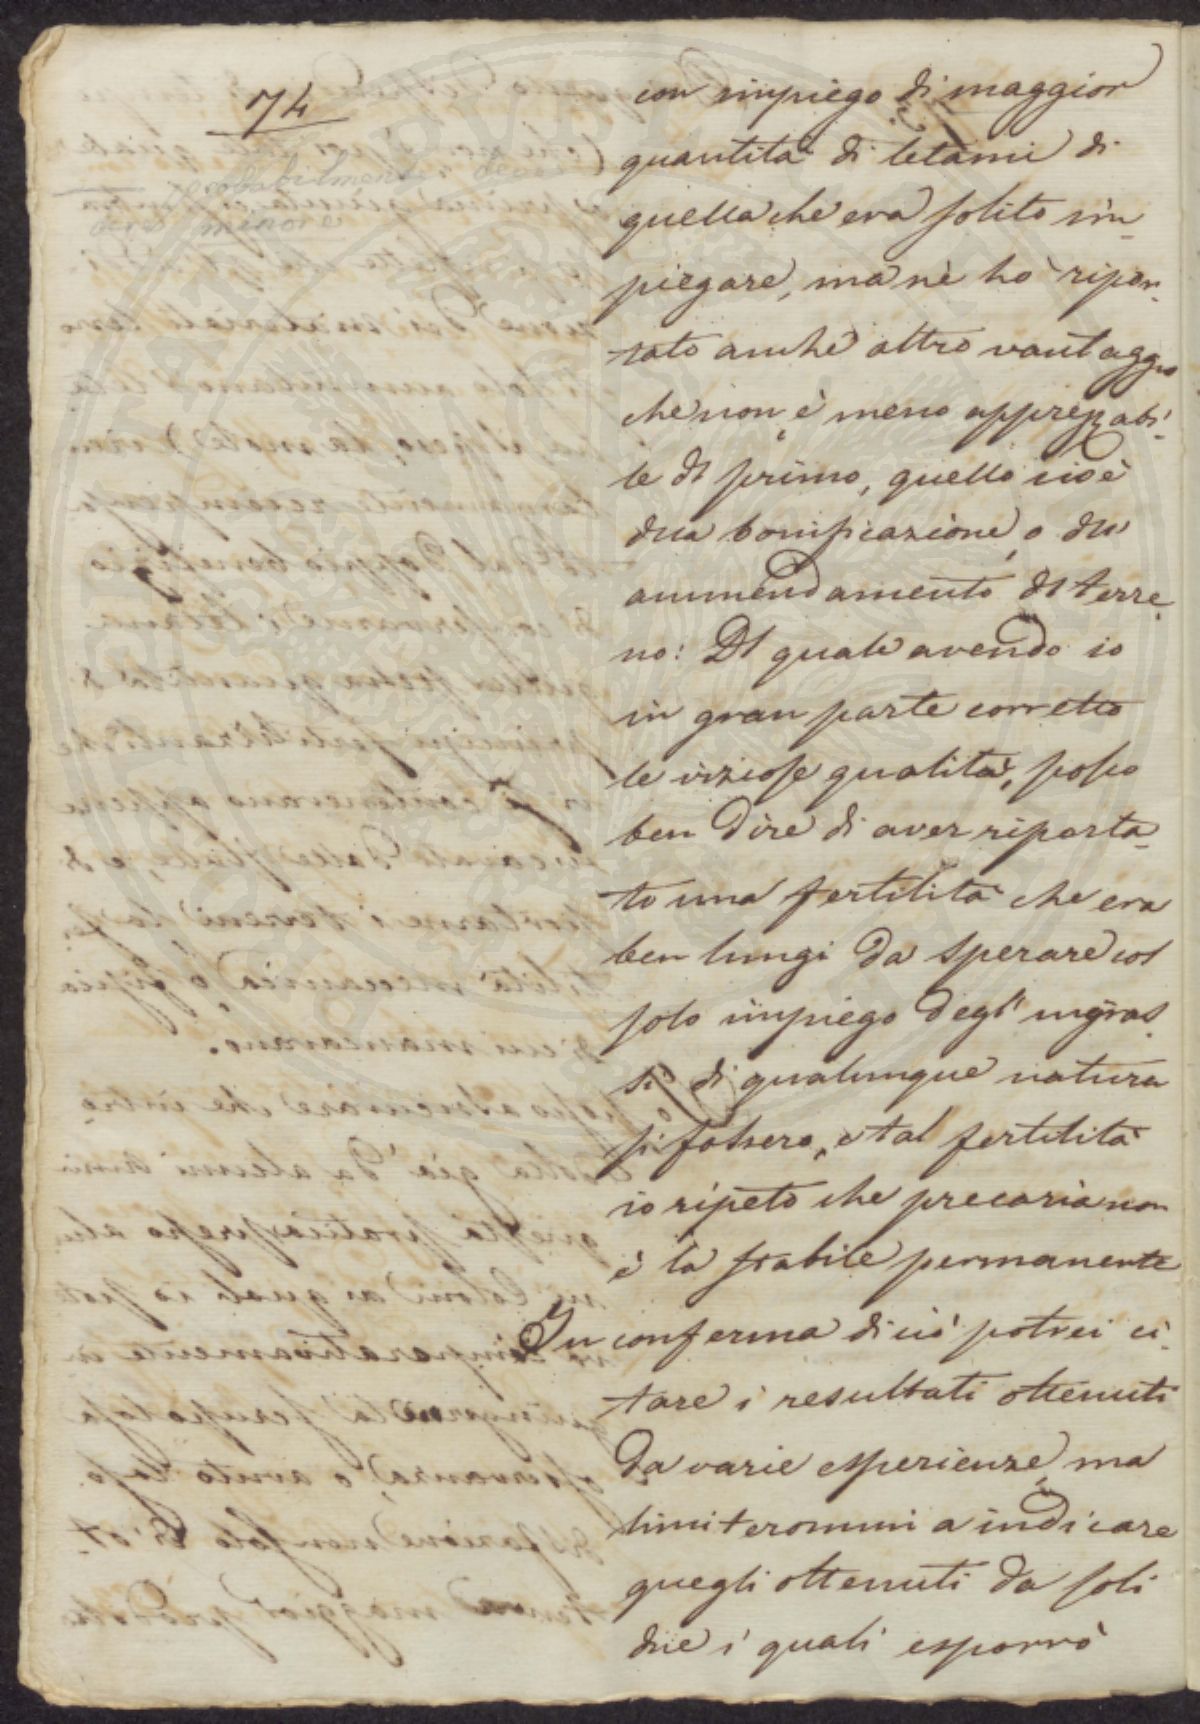 74
probabilmente deve
dire minore
con impiego di maggior
quantità di letami di
quella che era solito im-
piegare, ma nè hò ripor-
tato anche altro vantaggio
che non è meno apprezzabi-
le dl primo, quello cioè
dlla bonificazione, o dll'
ammendamento dl terre-
no: Dl quale avendo io
in gran parte corretto
le viziose qualità, posso
ben dire di aver riporta-
to una fertilità che era
ben lungi da sperare col
solo impiego degl'ingras-
si di qualunque natura
si fossero, e tal fertilità
io ripeto che precaria non
è la stabile permanente
In conferma di ciò potrei ci-
tare i resultati ottenuti
da varie esperienze, ma
limiterommi a indicare
quegli ottenuti da soli
due i quali esporrò